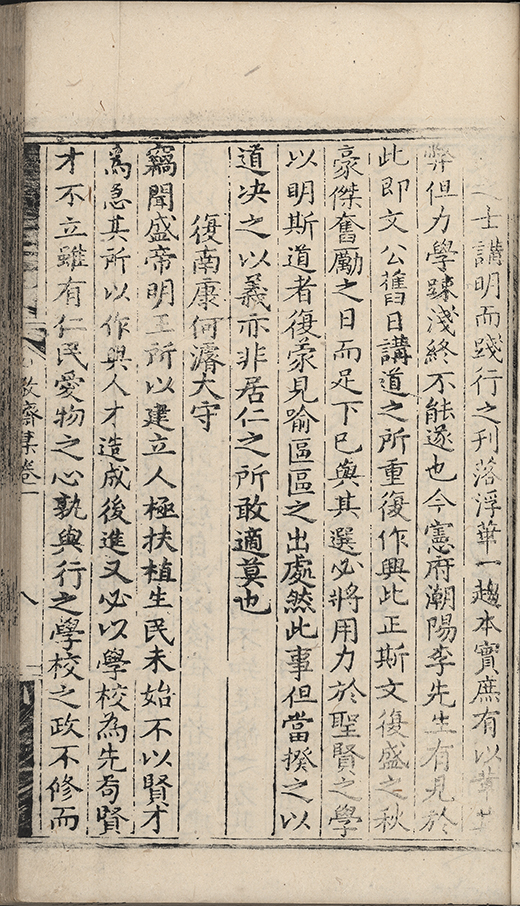 之士講明而踐行之刊落浮華一趨本實庶有以革其
弊但力學踈淺終不能遂也今憲府潮陽李先生有見於
此即文公舊日講道之所重復作興此正斯文復盛之秋
豪傑奮勵之日而足下已與其選必將用力於聖賢之學
以明斯道者復蒙見喻區區之出處然此事但當揆之以
道决之以義亦非居仁之所敢適莫也
復南康何濬大守
竊聞盛帝明王所以建立人極扶植生民未始不以賢才
為急其所以作興人才造成後進又必以學校為先茍賢
才不立雖有仁民愛物之心孰與行之學校之政不修而
敬齋集卷一
八